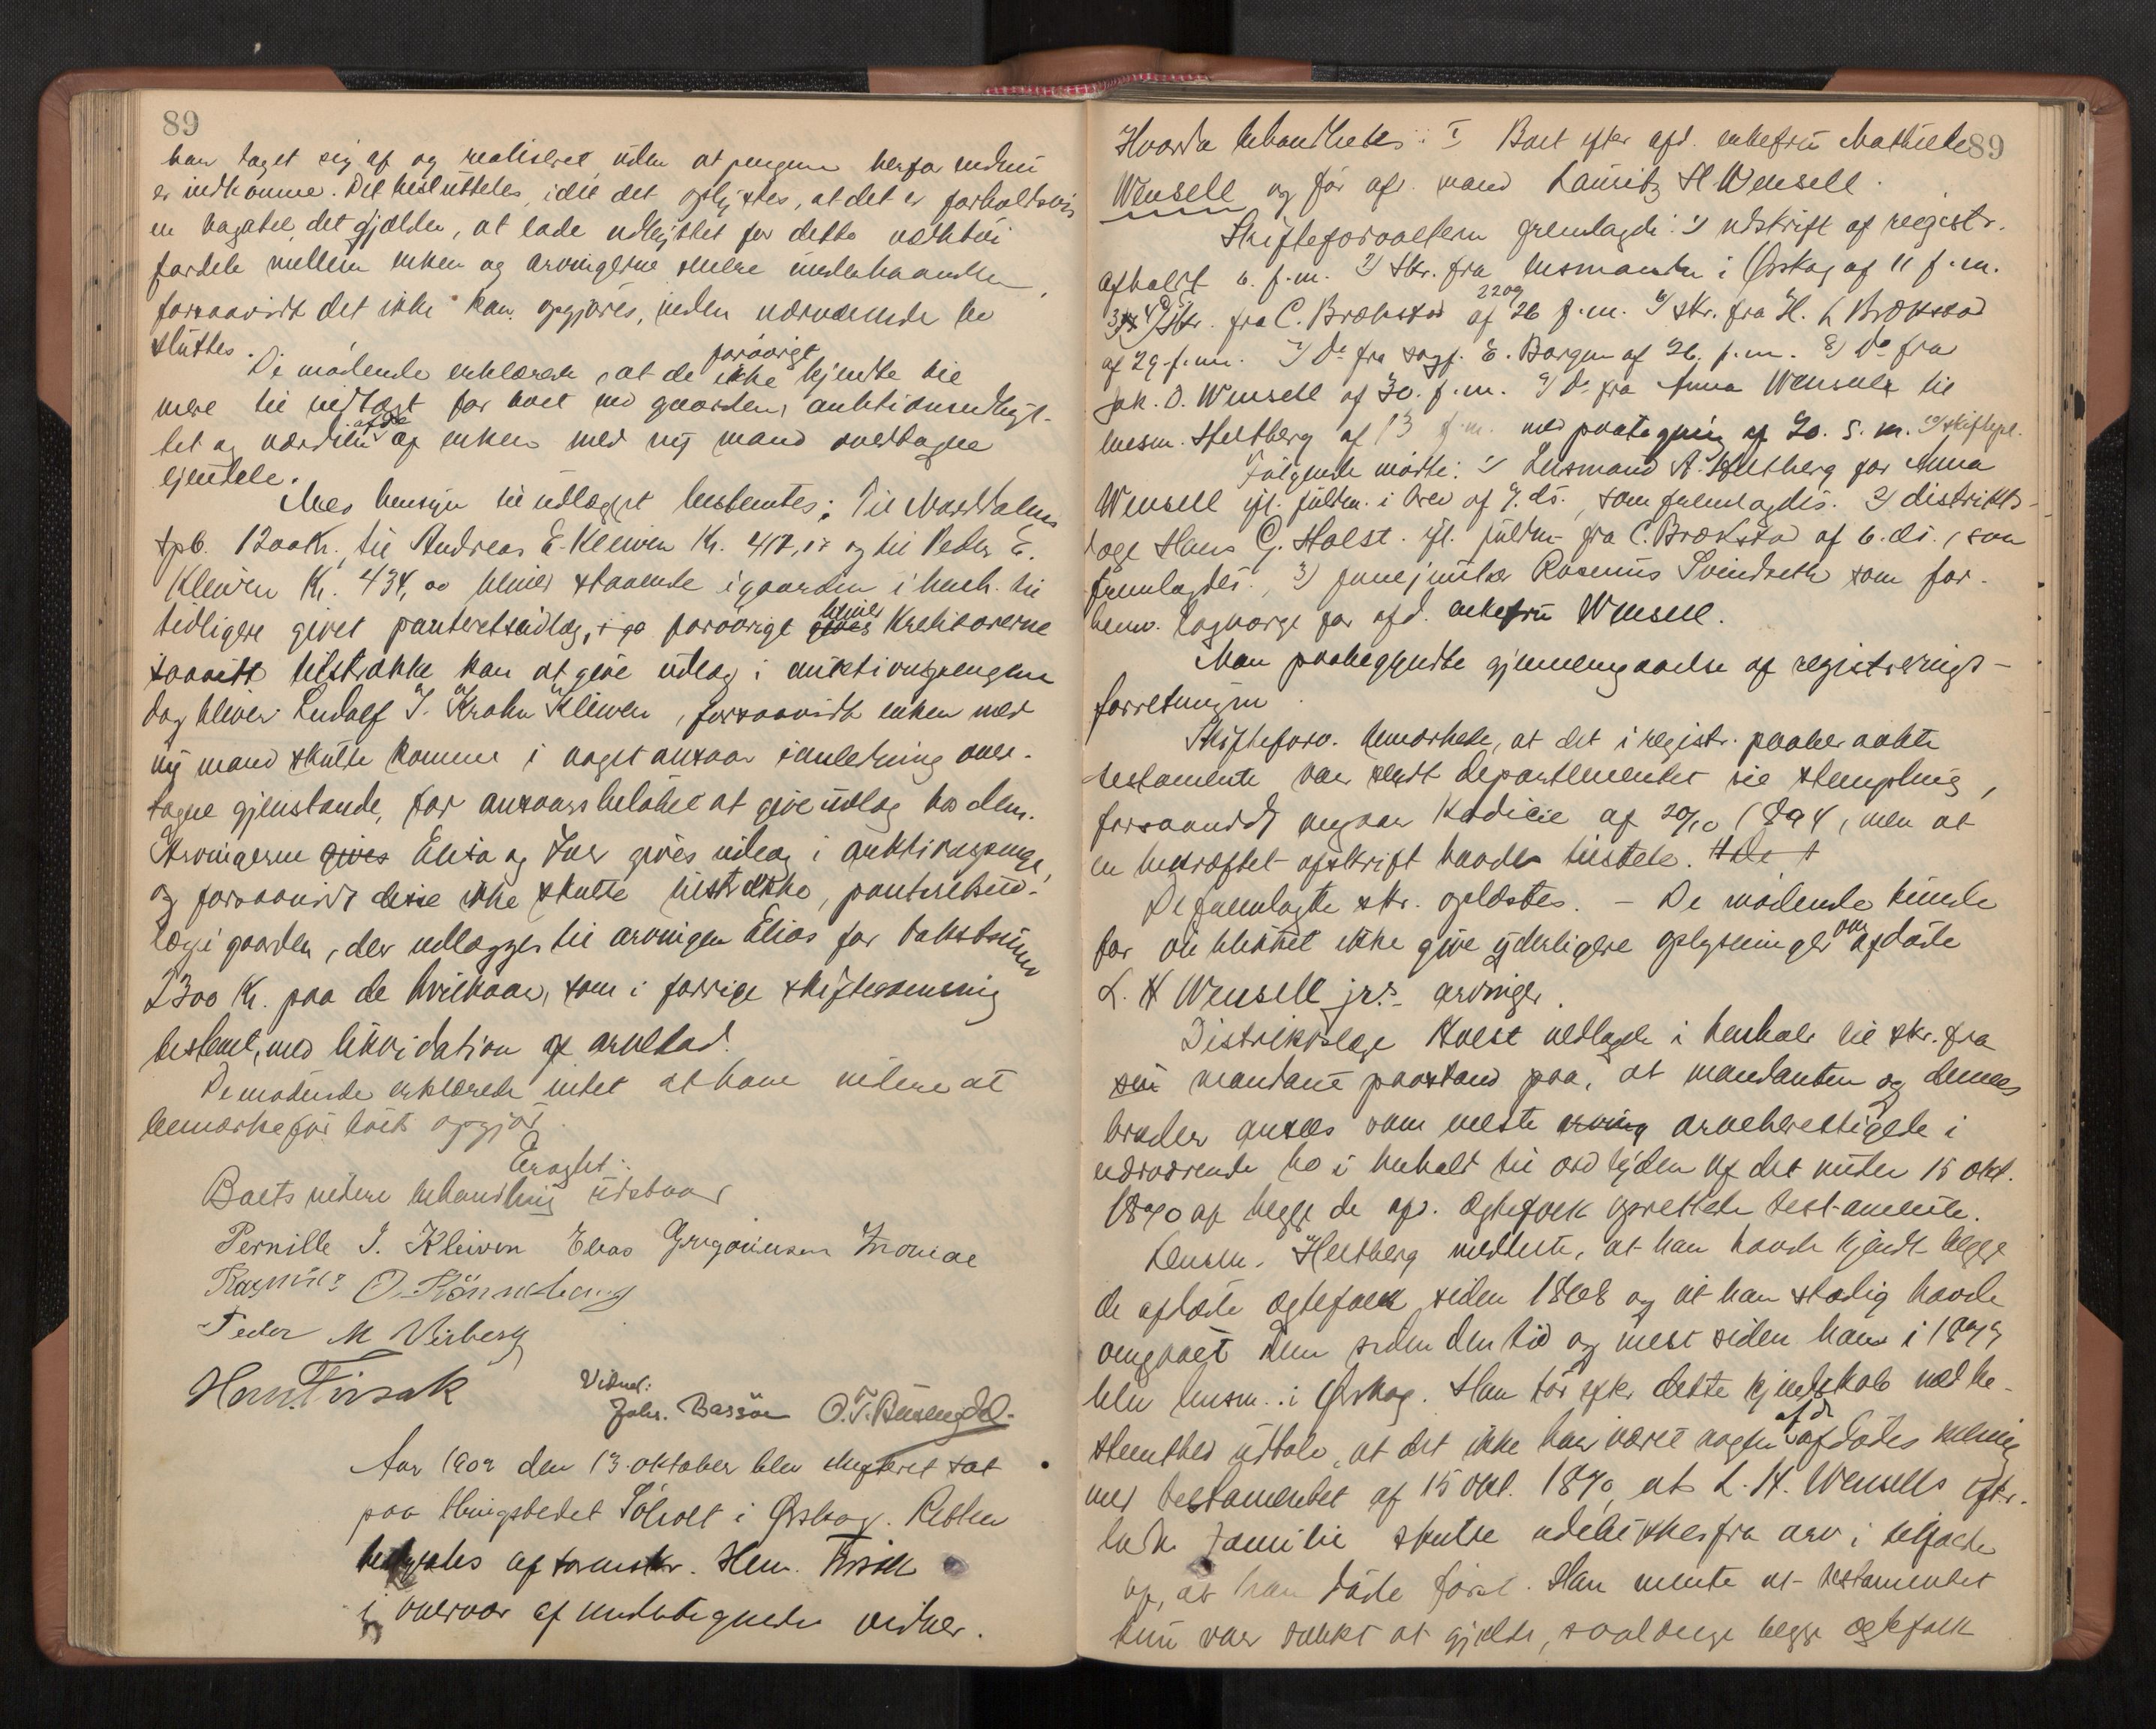 89
har taget sig af og realiseret uden at pengene herfor endnu
er indkomne. Det besluttedes, idet det oplystes, at det er forholdsvis
en bagatel det gjælder, at lade udbyttet for dette
fordele mellem enken og arvingerne senere underhaanden,
forsaavidt det ikke kan opgjøres, inden nærværende bo
sluttes.
De mødende erklærede, at de forøvrigt ikke kjendte til
mere til indtægt for boet end gaarden, auktionsudbyt-
tet og værdien af de af enken med ny mand overtagne
ejendele.
Med hensyn til udlægget bestemtes: Til
spb. 1200 Kr. til Andreas E. Kleiven Kr. 417, og til Peder E.
Kleiven Kr. 434,00 bliver staaende i gaarden i henh. til
tidligere givet panteretsudlæg, forøvrigt bliver Kreditorerne
saavidt tilstrække kan at give udlæg i auktionspengene
dog bliver Ludolf J. Krohn Kleiven, forsaavidt enken med
ny mand skulde komme i noget ansvar i anledning over-
tagne gjenstande, for ansvarsbeløbet at give udlæg hos dem.
Arvingerne gives Elisa og Iver gives udlæg i auktionspenge,
og forsaavidt disse ikke skulle tilstrække, panteretsud-
læg i gaarden, der udlægges til arvingen Elias for takstsummen
2300 Kr. paa de hvilkaar, som i forrige skiftesamling
bestemt, med likvidation af arvelod.
De mødende erklærede intet at have videre at
bemærke før boets opgjør.
Eragtet:
Boets videre behandling udstaar
Pernille J. Kleiven Elias
Rasmus O. Rønneberg
Peder M Viiberg
Hem. Tinsak
Vidner:
Johs. Bassøe O. T.
Aar 1902 den 13. oktober blev skifteret sat
paa thingstedet Sjøholt i Ørskog. Retten
betjentes af sorenskr. Hem.
i overvær af undertegnede vidner.
Hvorda behandledes: I Boet efter afd. enkefru Mathilde 89
Wensell og før afd. mand Lauritz H. Wensell.
Skifteforvalteren fremlagde: 1) udskrift af registr.
afholdt 6. f.m. 2) skr. fra lensmanden i Ørskog af 11 f.m.
3) & 4) Skr. fra C. Brækstad af 22 og 26 f.m. skr. fra H. L. Brækstad
af 29. f.m. 7) Do fra sagf. E. Borgen af 26. f.m. 8) Do fra
Jak. O. Wensell af 30. f.m. 9) Do fra Anna Wensell til
lensm. Heltberg af 13 f.m. med paategning af 20. s. m.
Følgende mødte: 1) Lensmand A. Heltberg for Anna
Wensell ifl. fuldm. i brev af 9. ds., som fremlagdes. 2) distrikts-
læge Hans G. Holst ifl. fuldm. fra C. Brækstad af 6. ds., som
fremlagdes., 3) Rasmus Svindseth som for-
henv. lagværge for afd. enkefru Wensell.
Man paabegyndte gjennemgaaelse af registrerings-
forretningen.
Skifteforv. bemærkede, at det i registr. paaberaabte
testamente var sendt departementet til stempling,
forsaavidt angaar Kodicil af 20/10 1894, men at
en bekræftet afskrift havdes tilstede.
De fremlagte skr. oplæstes. - De mødende kunde
for øieblikket ikke give yderligere oplysninger om afdøde
L. H Wensell jr.s arvinger.
Distriktslæge Holst nedlagde i henhold til skr. fra
sin mandant paastand paa, at mandanten og dennes
broder ansees som næste arving arveberettigede i
nærværende bo i henhold til ordlyden af det under 15 okt.
1890 af begge de afd. ægtefolk oprettede testamente.
Lensm. Heltberg meddelte, at han havde kjendt begge
de afdøde ægtefolk siden 1868 og at han stadig havde
omgaaet dem siden den tid og mest siden han i 1879
blev lensm. i Ørskog. Han tør efter dette kjendskab med be-
stemthed udtale, at det ikke har været nogen af de afdødes mening
med testamentet af 15 okt. 1890, at L. H. Wensells efter-
ladte familie skulde udelukkes fra arv i tilfælde
af, at han døde først. Han mente at testamentet
kun var tænkt at gjælde, saalænge begge ægtefolk